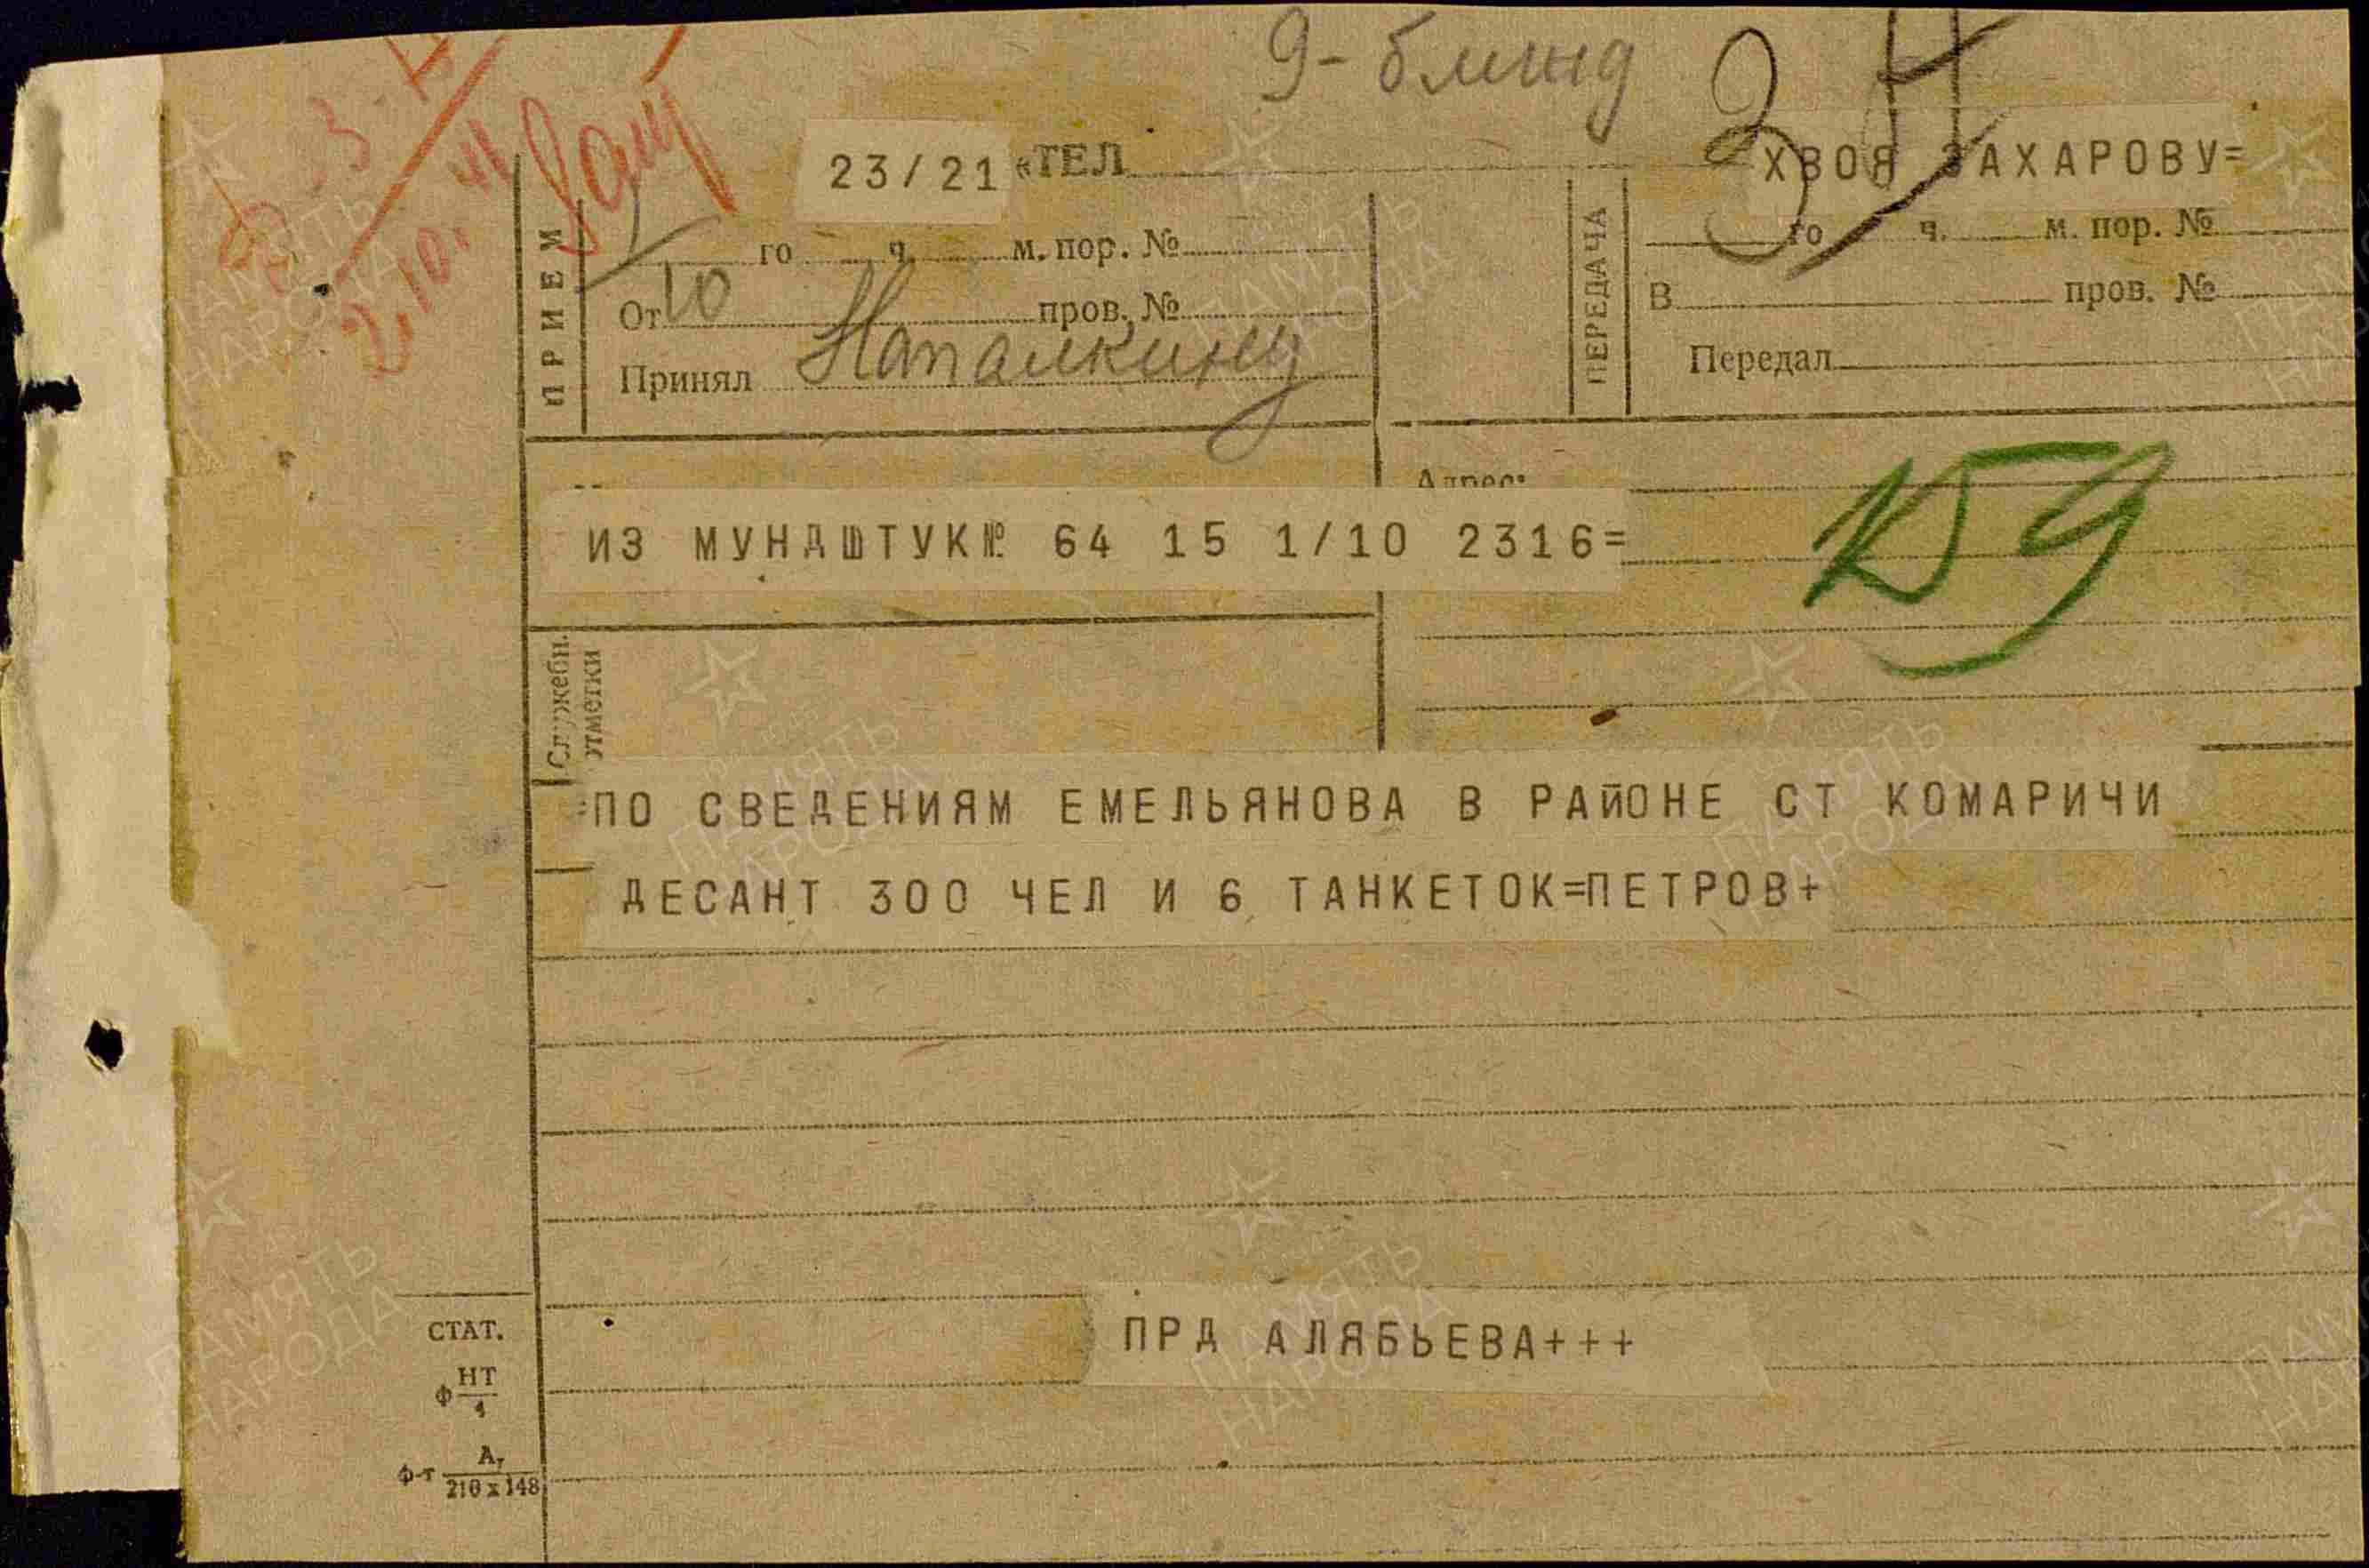 9-блинд
23/21 «ТЕЛ
ХВОЯ ЗАХАРОВУ=
2.10.41
ПРИЕМ
го ч. м. пор. №
От 10 пров. №
Принял
ПЕРЕДАЧА
го ч. м. пор. №
В пров. №
Передал
Адрес:
159
ИЗ МУНДШТУК№ 64 15 1/10 2316=
Служебн.
отметки
=ПО СВЕДЕНИЯМ ЕМЕЛЬЯНОВА В РАЙОНЕ СТ КОМАРИЧИ
ДЕСАНТ 300 ЧЕЛ И 6 ТАНКЕТОК=ПЕТРОВ+
ПРД АЛЯБЬЕВА+++
СТАТ.
ф НТ/4
ф-т А₇/210 х 148
ПАМЯТЬ
НАРОДА